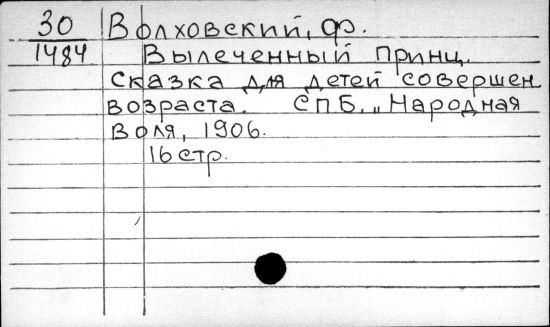 30 Волховский, Ф.
1484 Вылеченный принц.
Сказка для детей совершен
возраста. СПБ. „Народная
Воля, 1906.
16 стр.